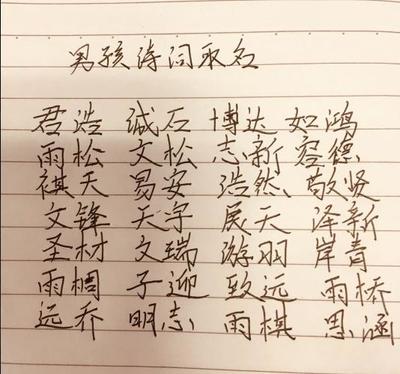 男孩诗词取名
君浩 诚石 博达 如鸿
雨松 文松 志新 容德
祺天 易安 浩然 敬贤
文锋 天宇 展天 泽新
圣材 文瑞 游羽 岸青
雨棡 子迎 致远 雨桥
远乔 明志 雨棋 思涵